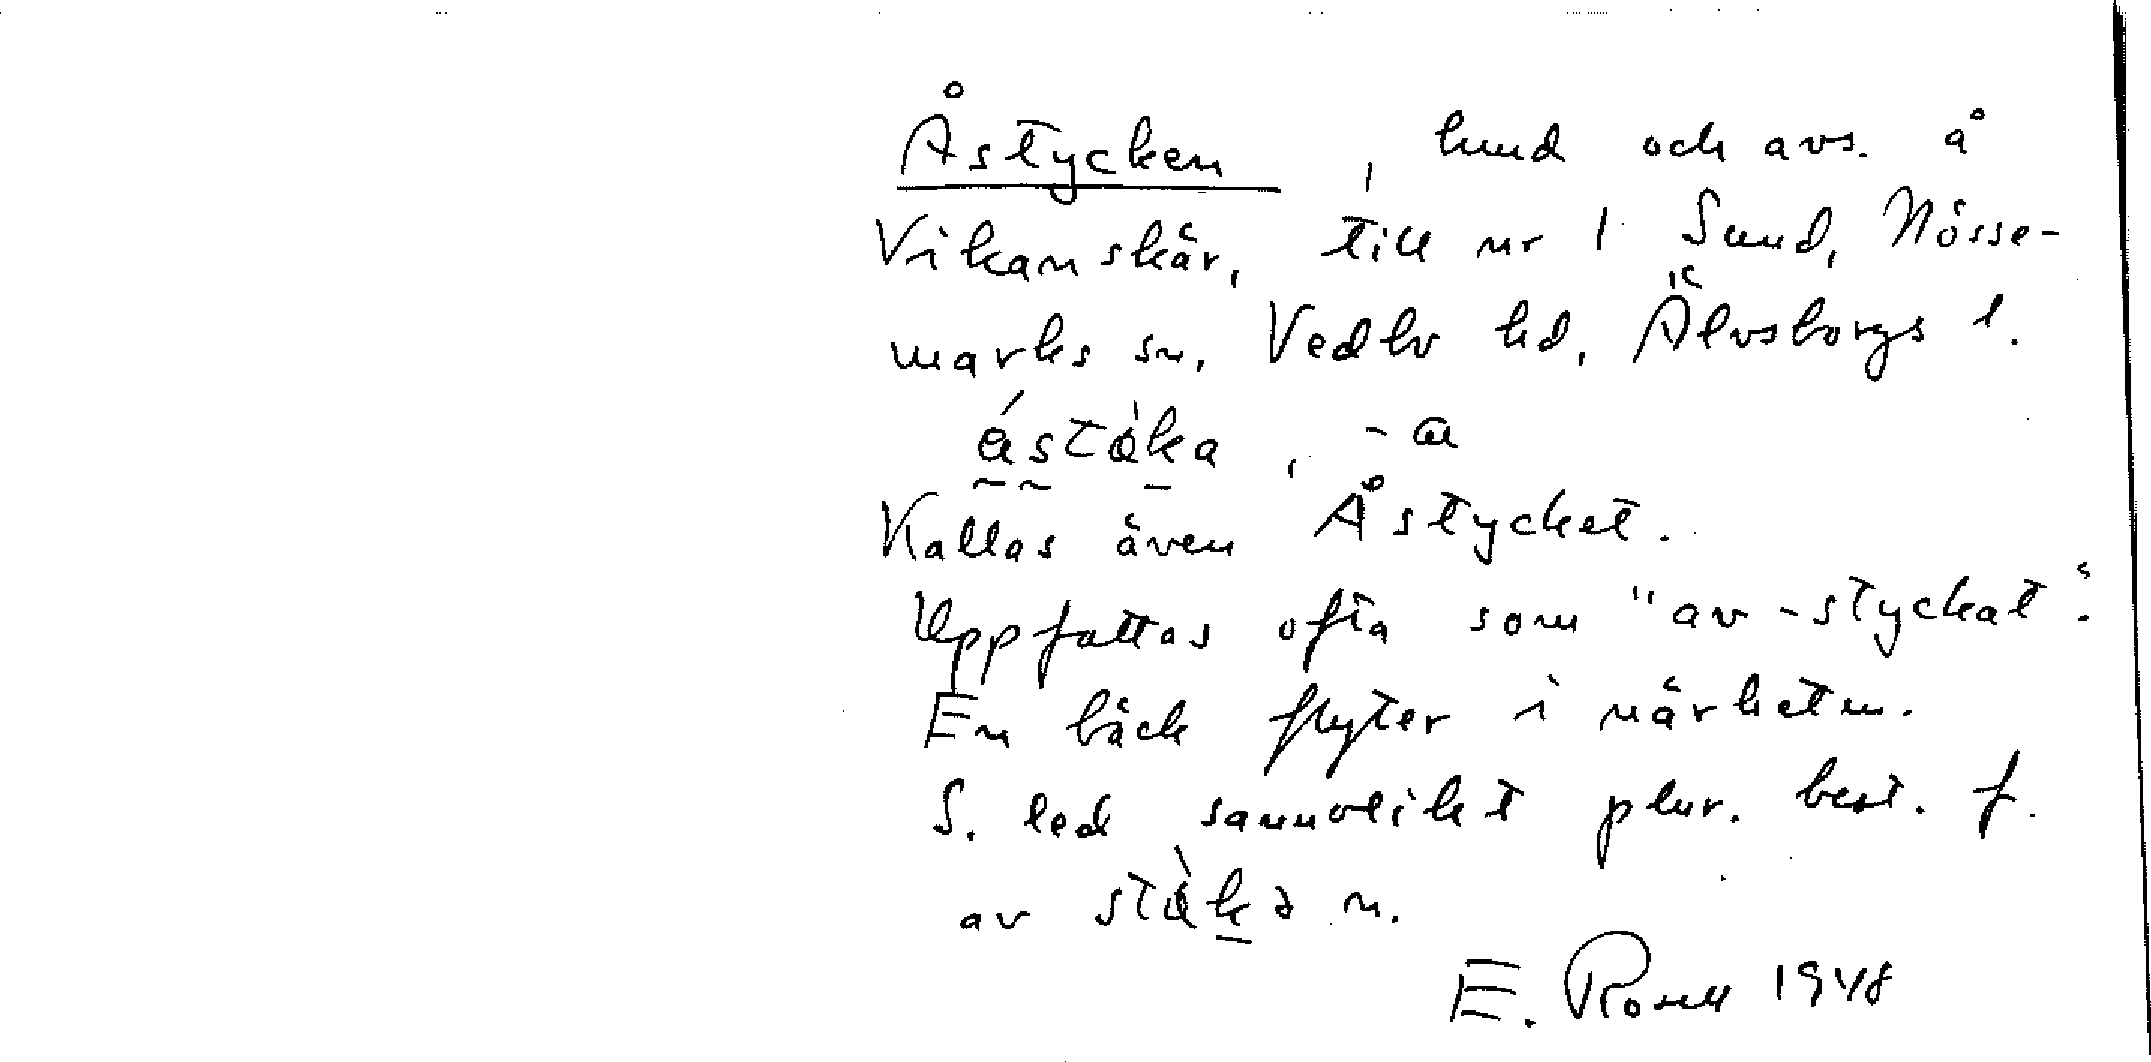 Åstycken, lund och avs. å
Vikanskär, till nr 1 Sund, Nösse-
marks sn, Vedbo hd, Älvsborgs l.
Kallas även Åstycket.
Uppfattas ofta som "av-styckat".
En bäck flyter i närheten.
S. led sannolikt plur. best. f.
av n.
E. Rosell 1948